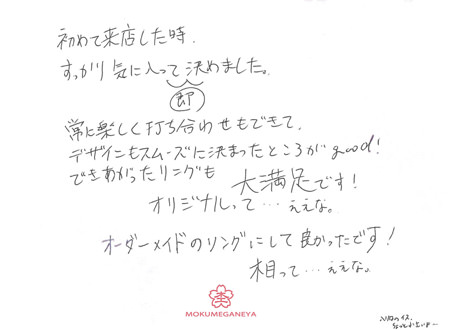 初めて来店した時、
すっかり気に入って決めました。
即
常に楽しく打ち合わせもできて、
デザインもスムーズに決まったところがgood!
できあがったリングも 大満足です!
オリジナルって…ええな。
オーダーメイドのリングにして良かったです!
相って…ええな。
MOKUMEGANEYA